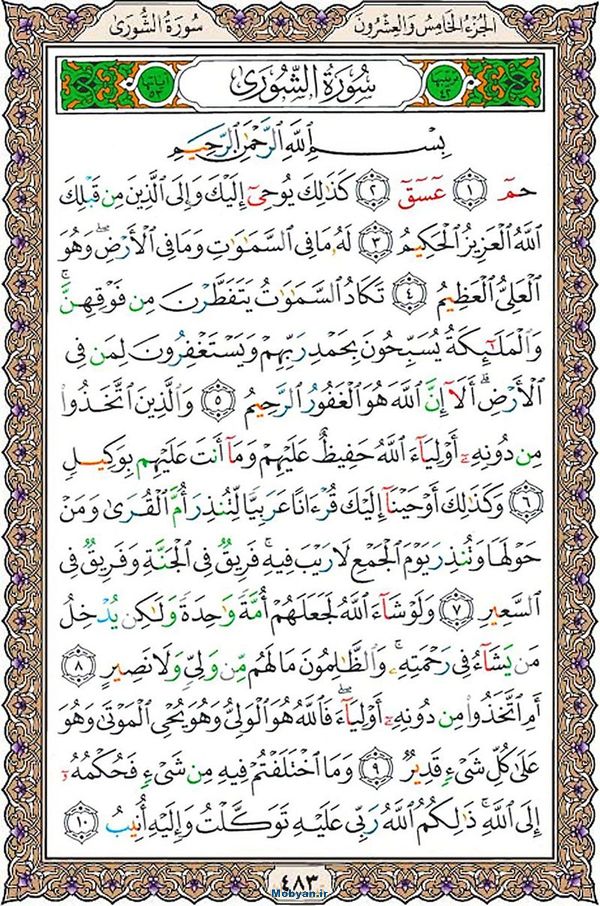 الجزء الخامس والعشرون
سورة الشورى
ترتيبها ٤٢
سُورَةُ الشُّورَىٰ
آياتها ٥٣
بِسْمِ اللَّهِ الرَّحْمَٰنِ الرَّحِيمِ
حمٓ ﴿١﴾ عٓسٓقٓ ﴿٢﴾ كَذَٰلِكَ يُوحِيٓ إِلَيْكَ وَإِلَى الَّذِينَ مِن قَبْلِكَ
اللَّهُ الْعَزِيزُ الْحَكِيمُ ﴿٣﴾ لَهُۥ مَا فِي السَّمَٰوَٰتِ وَمَا فِي الْأَرْضِ ۖ وَهُوَ
الْعَلِيُّ الْعَظِيمُ ﴿٤﴾ تَكَادُ السَّمَٰوَٰتُ يَتَفَطَّرْنَ مِن فَوْقِهِنَّ ۚ
وَالْمَلَٰٓئِكَةُ يُسَبِّحُونَ بِحَمْدِ رَبِّهِمْ وَيَسْتَغْفِرُونَ لِمَن فِي
الْأَرْضِ ۗ أَلَآ إِنَّ اللَّهَ هُوَ الْغَفُورُ الرَّحِيمُ ﴿٥﴾ وَالَّذِينَ اتَّخَذُوا۟
مِن دُونِهِۦٓ أَوْلِيَآءَ اللَّهُ حَفِيظٌ عَلَيْهِمْ وَمَآ أَنتَ عَلَيْهِم بِوَكِيلٍ
﴿٦﴾ وَكَذَٰلِكَ أَوْحَيْنَآ إِلَيْكَ قُرْءَانًا عَرَبِيًّا لِّتُنذِرَ أُمَّ الْقُرَىٰ وَمَنْ
حَوْلَهَا وَتُنذِرَ يَوْمَ الْجَمْعِ لَا رَيْبَ فِيهِ ۚ فَرِيقٌ فِي الْجَنَّةِ وَفَرِيقٌ فِي
السَّعِيرِ ﴿٧﴾ وَلَوْ شَآءَ اللَّهُ لَجَعَلَهُمْ أُمَّةً وَٰحِدَةً وَلَٰكِن يُدْخِلُ
مَن يَشَآءُ فِي رَحْمَتِهِۦ ۚ وَالظَّٰلِمُونَ مَا لَهُم مِّن وَلِيٍّ وَلَا نَصِيرٍ ﴿٨﴾
أَمِ اتَّخَذُوا۟ مِن دُونِهِۦٓ أَوْلِيَآءَ ۖ فَاللَّهُ هُوَ الْوَلِيُّ وَهُوَ يُحْيِ الْمَوْتَىٰ وَهُوَ
عَلَىٰ كُلِّ شَيْءٍ قَدِيرٌ ﴿٩﴾ وَمَا اخْتَلَفْتُمْ فِيهِ مِن شَيْءٍ فَحُكْمُهُۥٓ
إِلَى اللَّهِ ۚ ذَٰلِكُمُ اللَّهُ رَبِّي عَلَيْهِ تَوَكَّلْتُ وَإِلَيْهِ أُنِيبُ ﴿١٠﴾
٤٨٣
Mobyan.ir